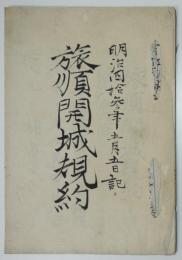 明治四拾参年五月五日記、
旅順開城規約